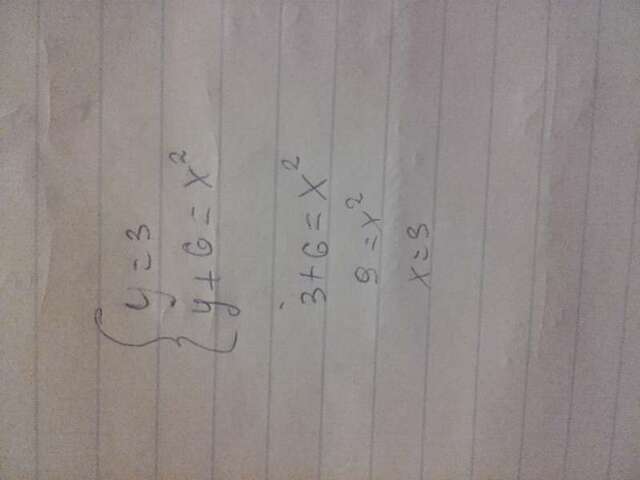 y = 3
y + 6 = x²
3 + 6 = x²
9 = x²
x = 3